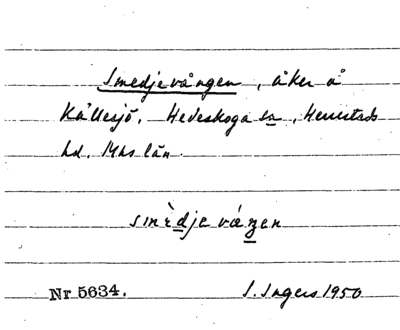 Smedjevången, åker å
Kållesjö, Hedeskoga sn, Herrestads
hd. Mhs län.
smèdjevåŋen
Nr 5634. I. Ingers 1950